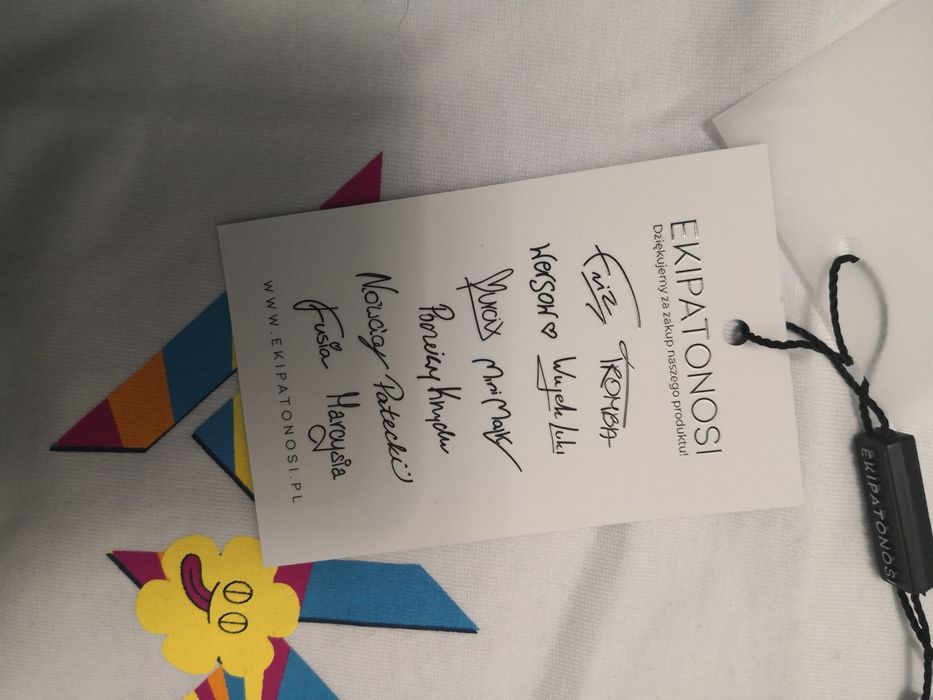 EKIPATONOSI
Dziękujemy za zakup naszego produktu!
Friz TROMBA
Wersow Wujek Łuki
Murcix Mini Majk
Poczciwy Krzychu
Nowciax Patecki
Fusia Marcysia
WWW.EKIPATONOSI.PL
EKIPATONOSI